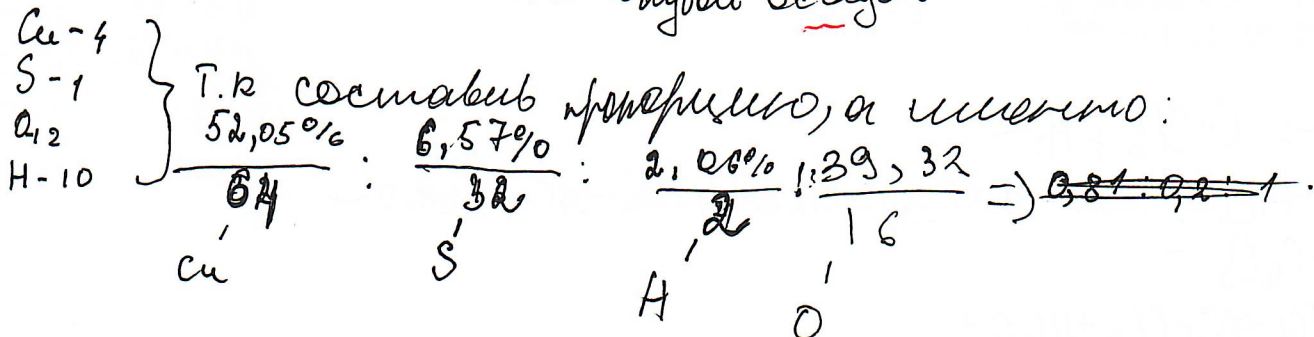 Cu-4
S-1
O12
H-10
Т.к составив пропорцию, а именно:
52,05% : 6,57% : 2,06% : 39,32 =)
64 32 2 16
Cu S H O